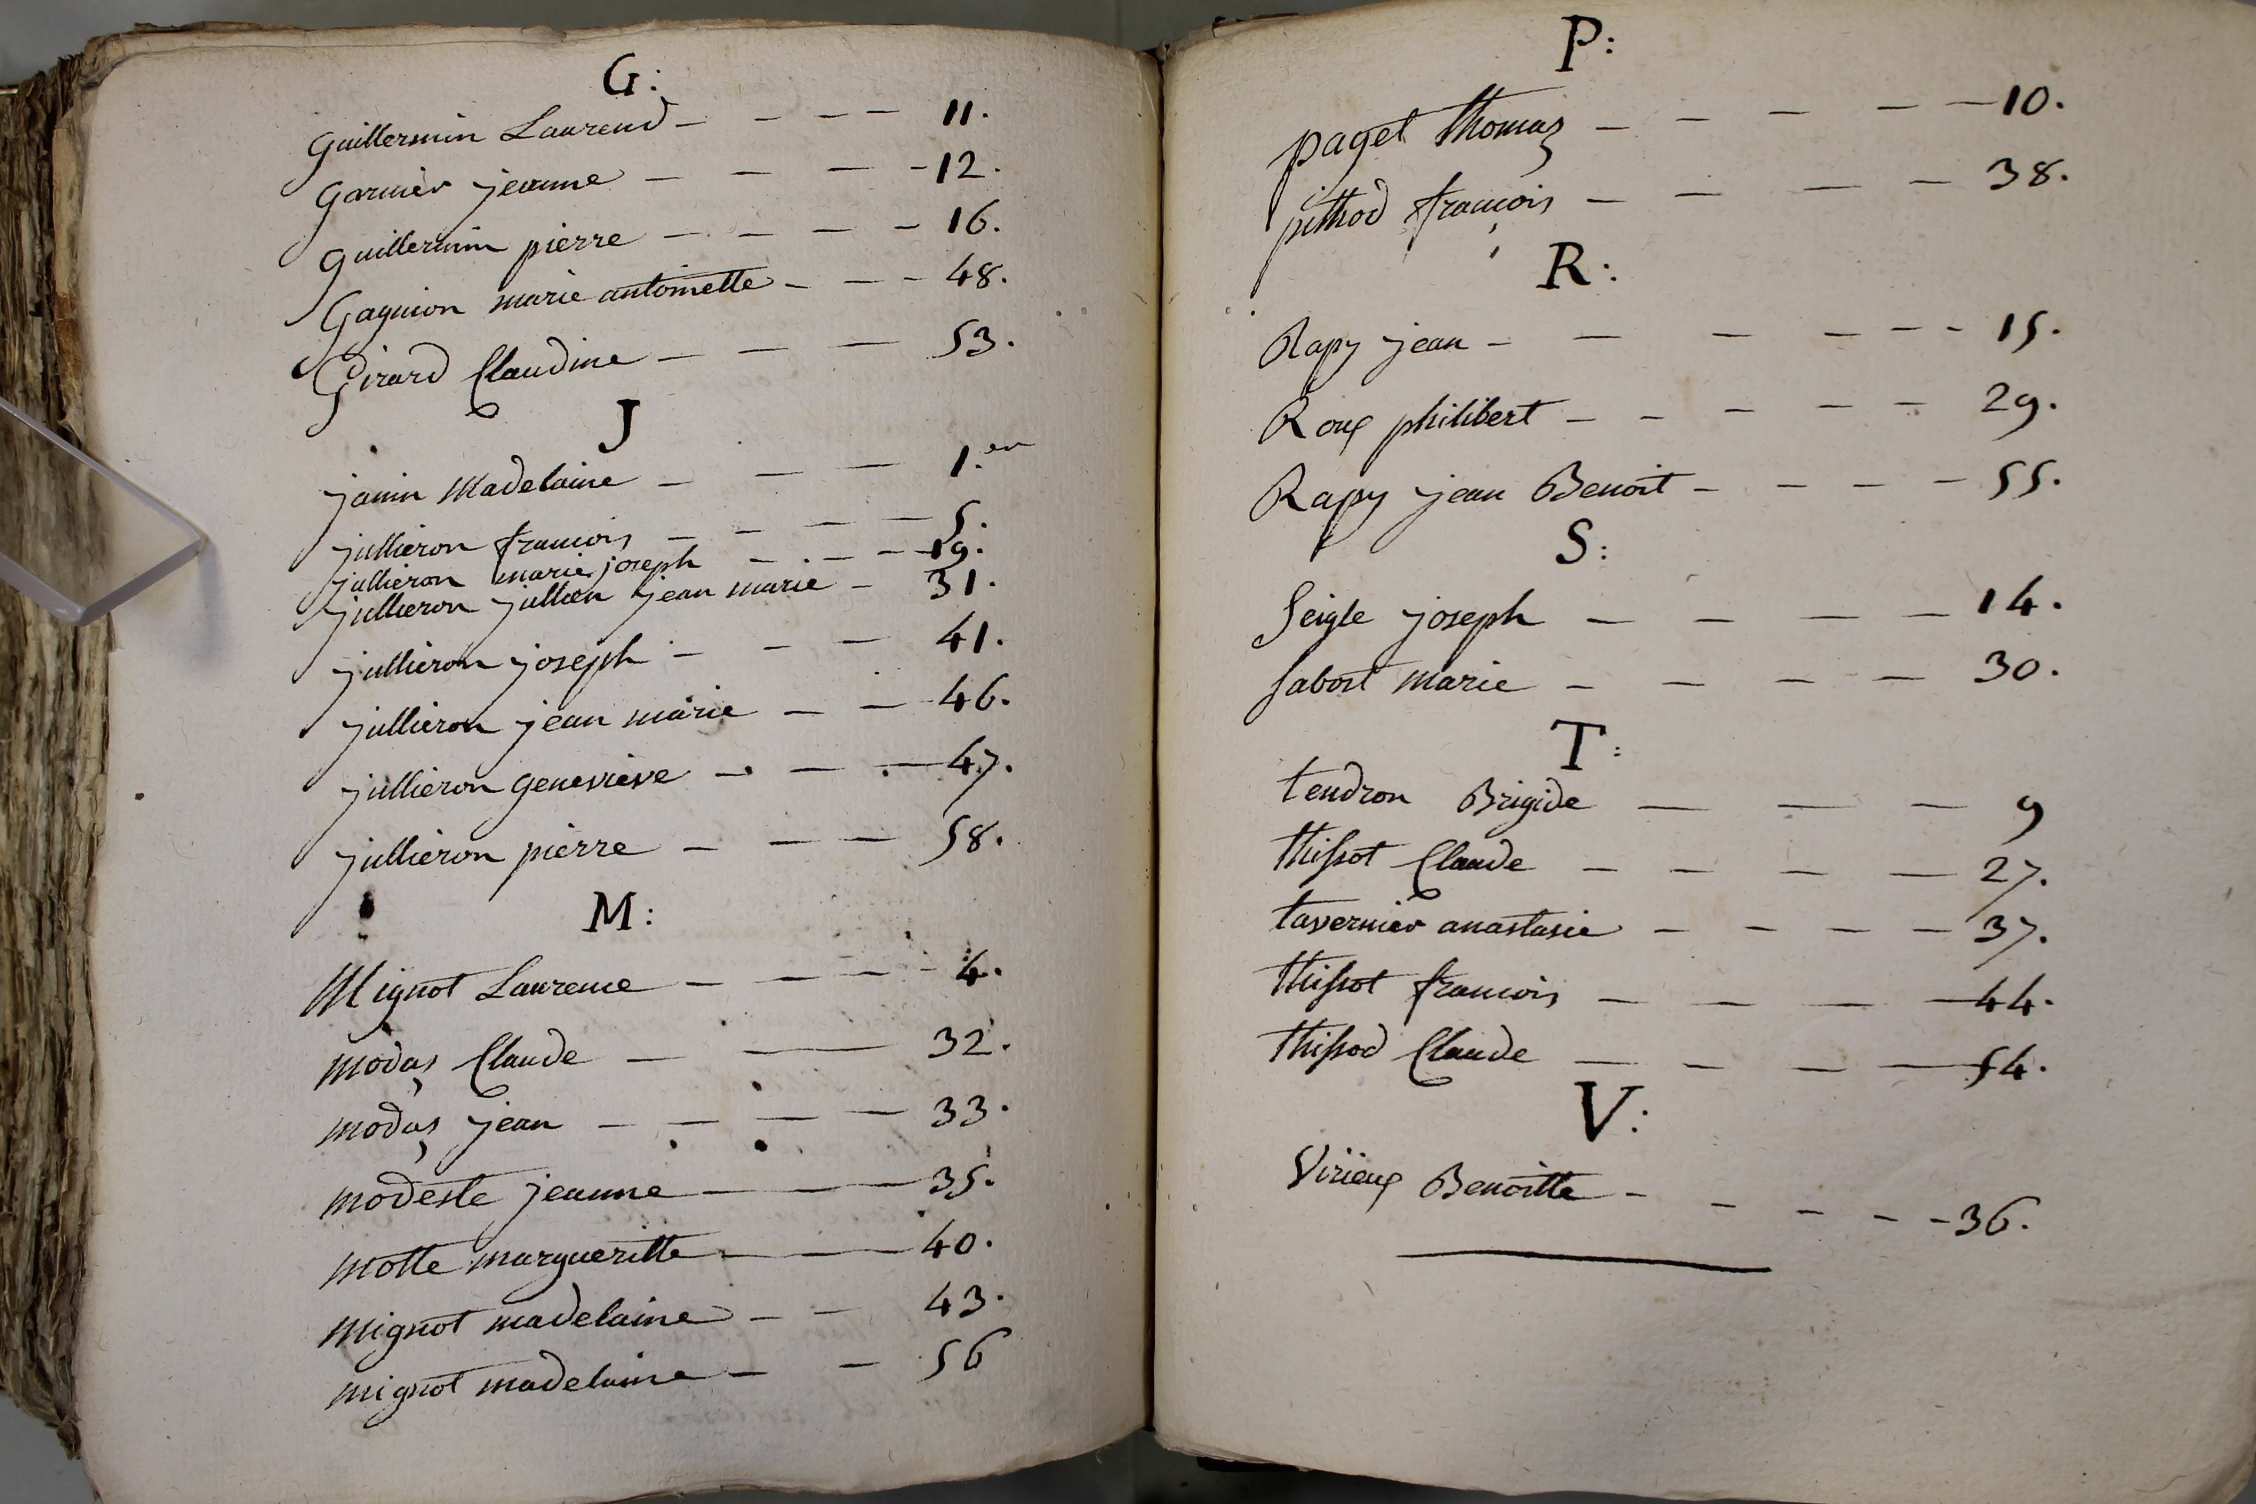 G:
Guillermin Laurend - - - - 11.
Garnier jeanne - - - - 12.
Guillermin pierre - - - - 16.
Gagnion marie antoinette - - - 48.
Girard Claudine - - - 53.
J
janin Madelaine - - - 1.er
jullieron francois - - - - 5.
jullieron marie joseph - - - - 19.
jullieron jullien jean marie - 31.
jullieron joseph - - - 41.
jullieron jean marie - - 46.
jullieron genevieve - - - 47.
jullieron pierre - - - 58.
M:
Mignot Laurence - - - - 4.
modas Claude - - 32.
modas jean - - - - 33.
modeste jeanne - - - 35.
motte margueritte - - 40.
mignot madelaine - - 43.
mignot madelaine - - 56
P:
paget thomas - - - - - 10.
pithod françois - - - - 38.
R:
Rapy jean - - - - - - 15.
Roux philibert - - - - - 29.
Rapy jean Benoit - - - - 55.
S:
Seigle joseph - - - - 14.
Sabost marie - - - - 30.
T:
tendron Brigide - - - 9
thissot Claude - - - - 27.
tavernier anastasie - - - - 37.
thissot francois - - - - 44.
thissod Claude - - - - 54.
V:
Virieux Benoitte - - - - - 36.